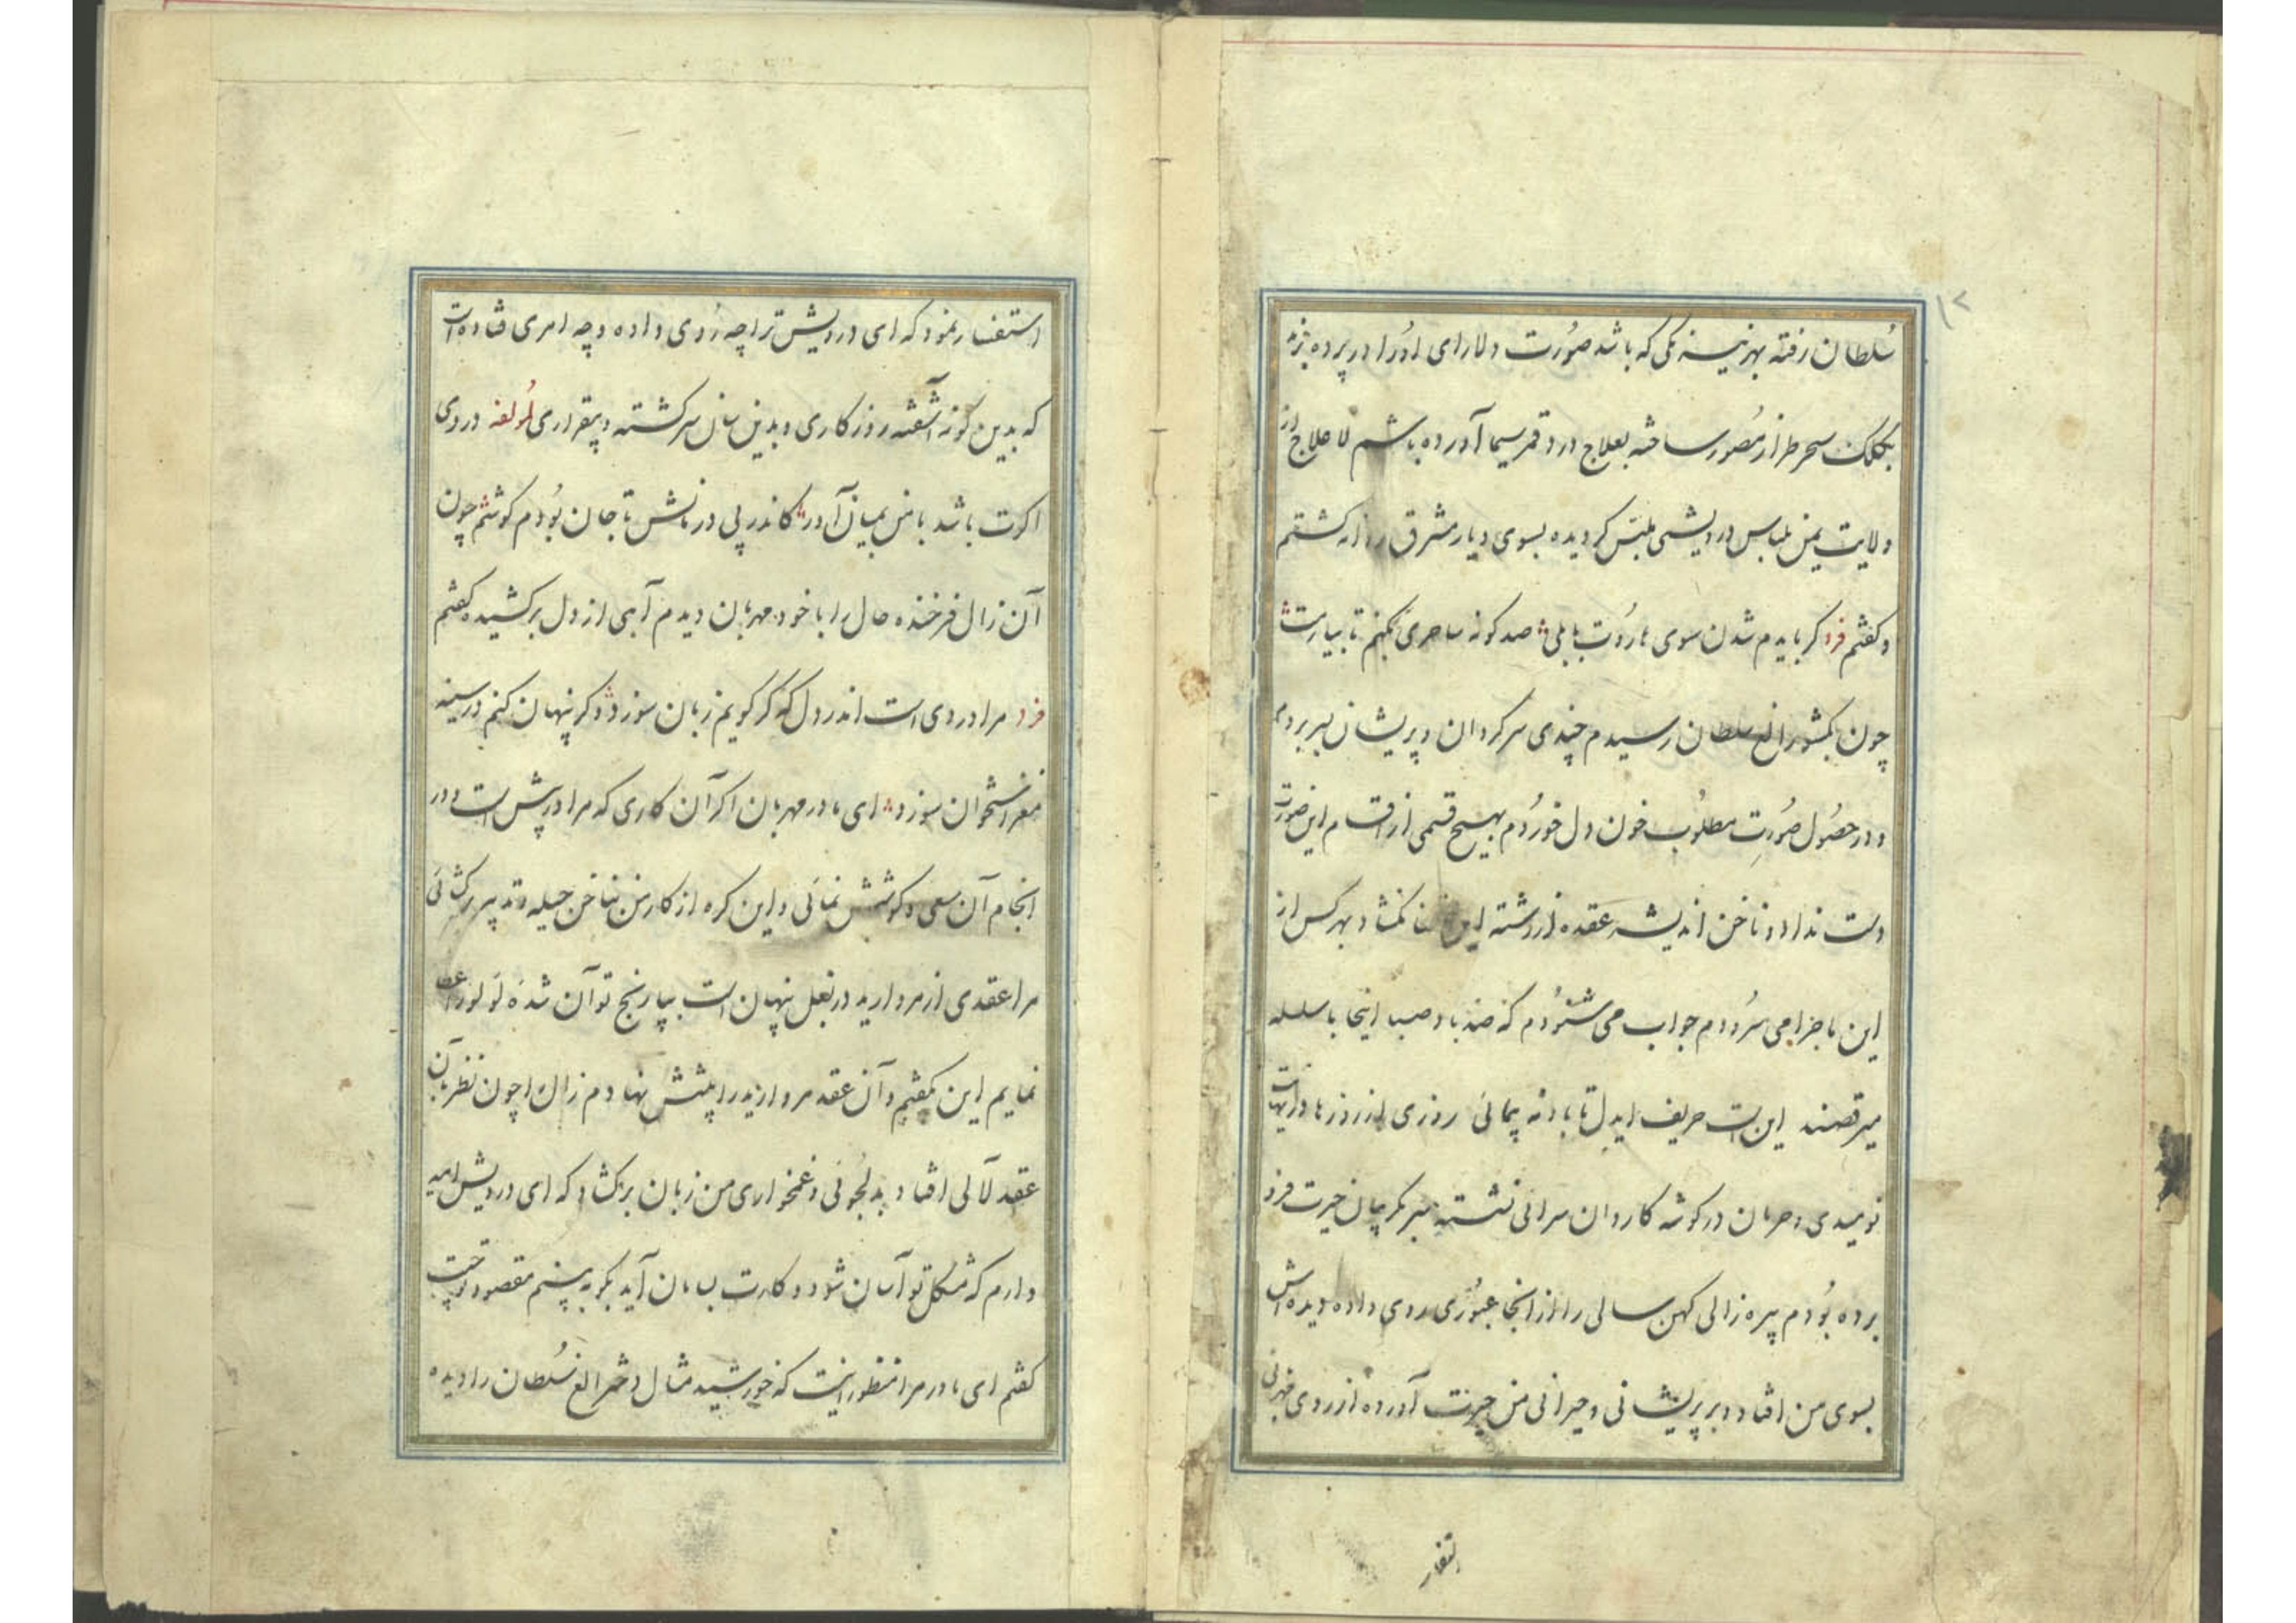 ۱۲
سُلطان رفته بهر نیرنگی که باشد صُورت دلارای اورا در پرده
بکلک سحرطراز مُصور ساخته بعلاج درد قمرسیما آورده باشم لاعلاج از
ولایت یمن بلباس درویشی ملبّس کردیده بسوی دیار مشرق روانه کشتم
و کفتم فرد کر بایدم شدن سوی هارُوت بابلی صد کونه ساحری بکنم تا بیارمت
چون بکشور الغ سلطان رسیدم چندی سرکردان و پریشان بسر بردم
و در حصُول صُورتِ مطلُوب خون دل خوردم بهیچ قسمی از اقسام این صورت
دست نداد و ناخن اندیشه عقده از رشته این نکشاد بهر کس از
این ماجرا می سرُودم جواب می شنُودم که صد باد صبا اینجا با سلسله
میرقصند این است حریف ایدل تا باد نه پیمائی روزی از روزها در نهایت
نومیدی و حرمان در کوشه کاروان سرائی نشسته سر بکریبان حیرت فرو
برده بُودم پیره زالی کهن سالی را از انجا عبُوری روی داده دیده اش
بسوی من افتاد و بر پریشانی و حیرانی من حیرت آورده از روی مهربانی
استفسار
استفسار نمود که ای درویش ترا چه رُوی داده و چه امری فتاده است
که بدین کونه آشفته روزکاری و بدین سان سرکشته و بیقراری لمُولفه دردی
اکرت باشد با من بمیان آور کاندر پی درمانش تا جان بُودم کوشم چون
آن زال فرخنده حال را با خود مهربان دیدم آهی از دل برکشیده کفتم
فرد مرا دردی است اندر دل که کر کویم زبان سوزد و کر پنهان کنم در سینه
مغز استخوان سوزد ای مادر مهربان اکر آن کاری که مرا در پیش است و در
انجام آن سعی و کوشش نمائی و این کره از کار من بناخن حیله و تدبیر برکشائی
مرا عقدی از مروارید در بغل پنهان است بپارنج تو آن شده لولو را عطا
نمایم این بکفتم و آن عقد مروارید را پیشش نهادم زال را چون نظر بآن
عقد لآلی افتاد بدلجُوئی و غمخواری من زبان برکشاد که ای درویش امید
دارم که مشکل تو آسان شود و کارت بسامان آید بکو به بینم مقصود تو چیست
کفتم ای مادر مرا منظور اینست که خورشید مثال دختر الغ سُلطان را دیده